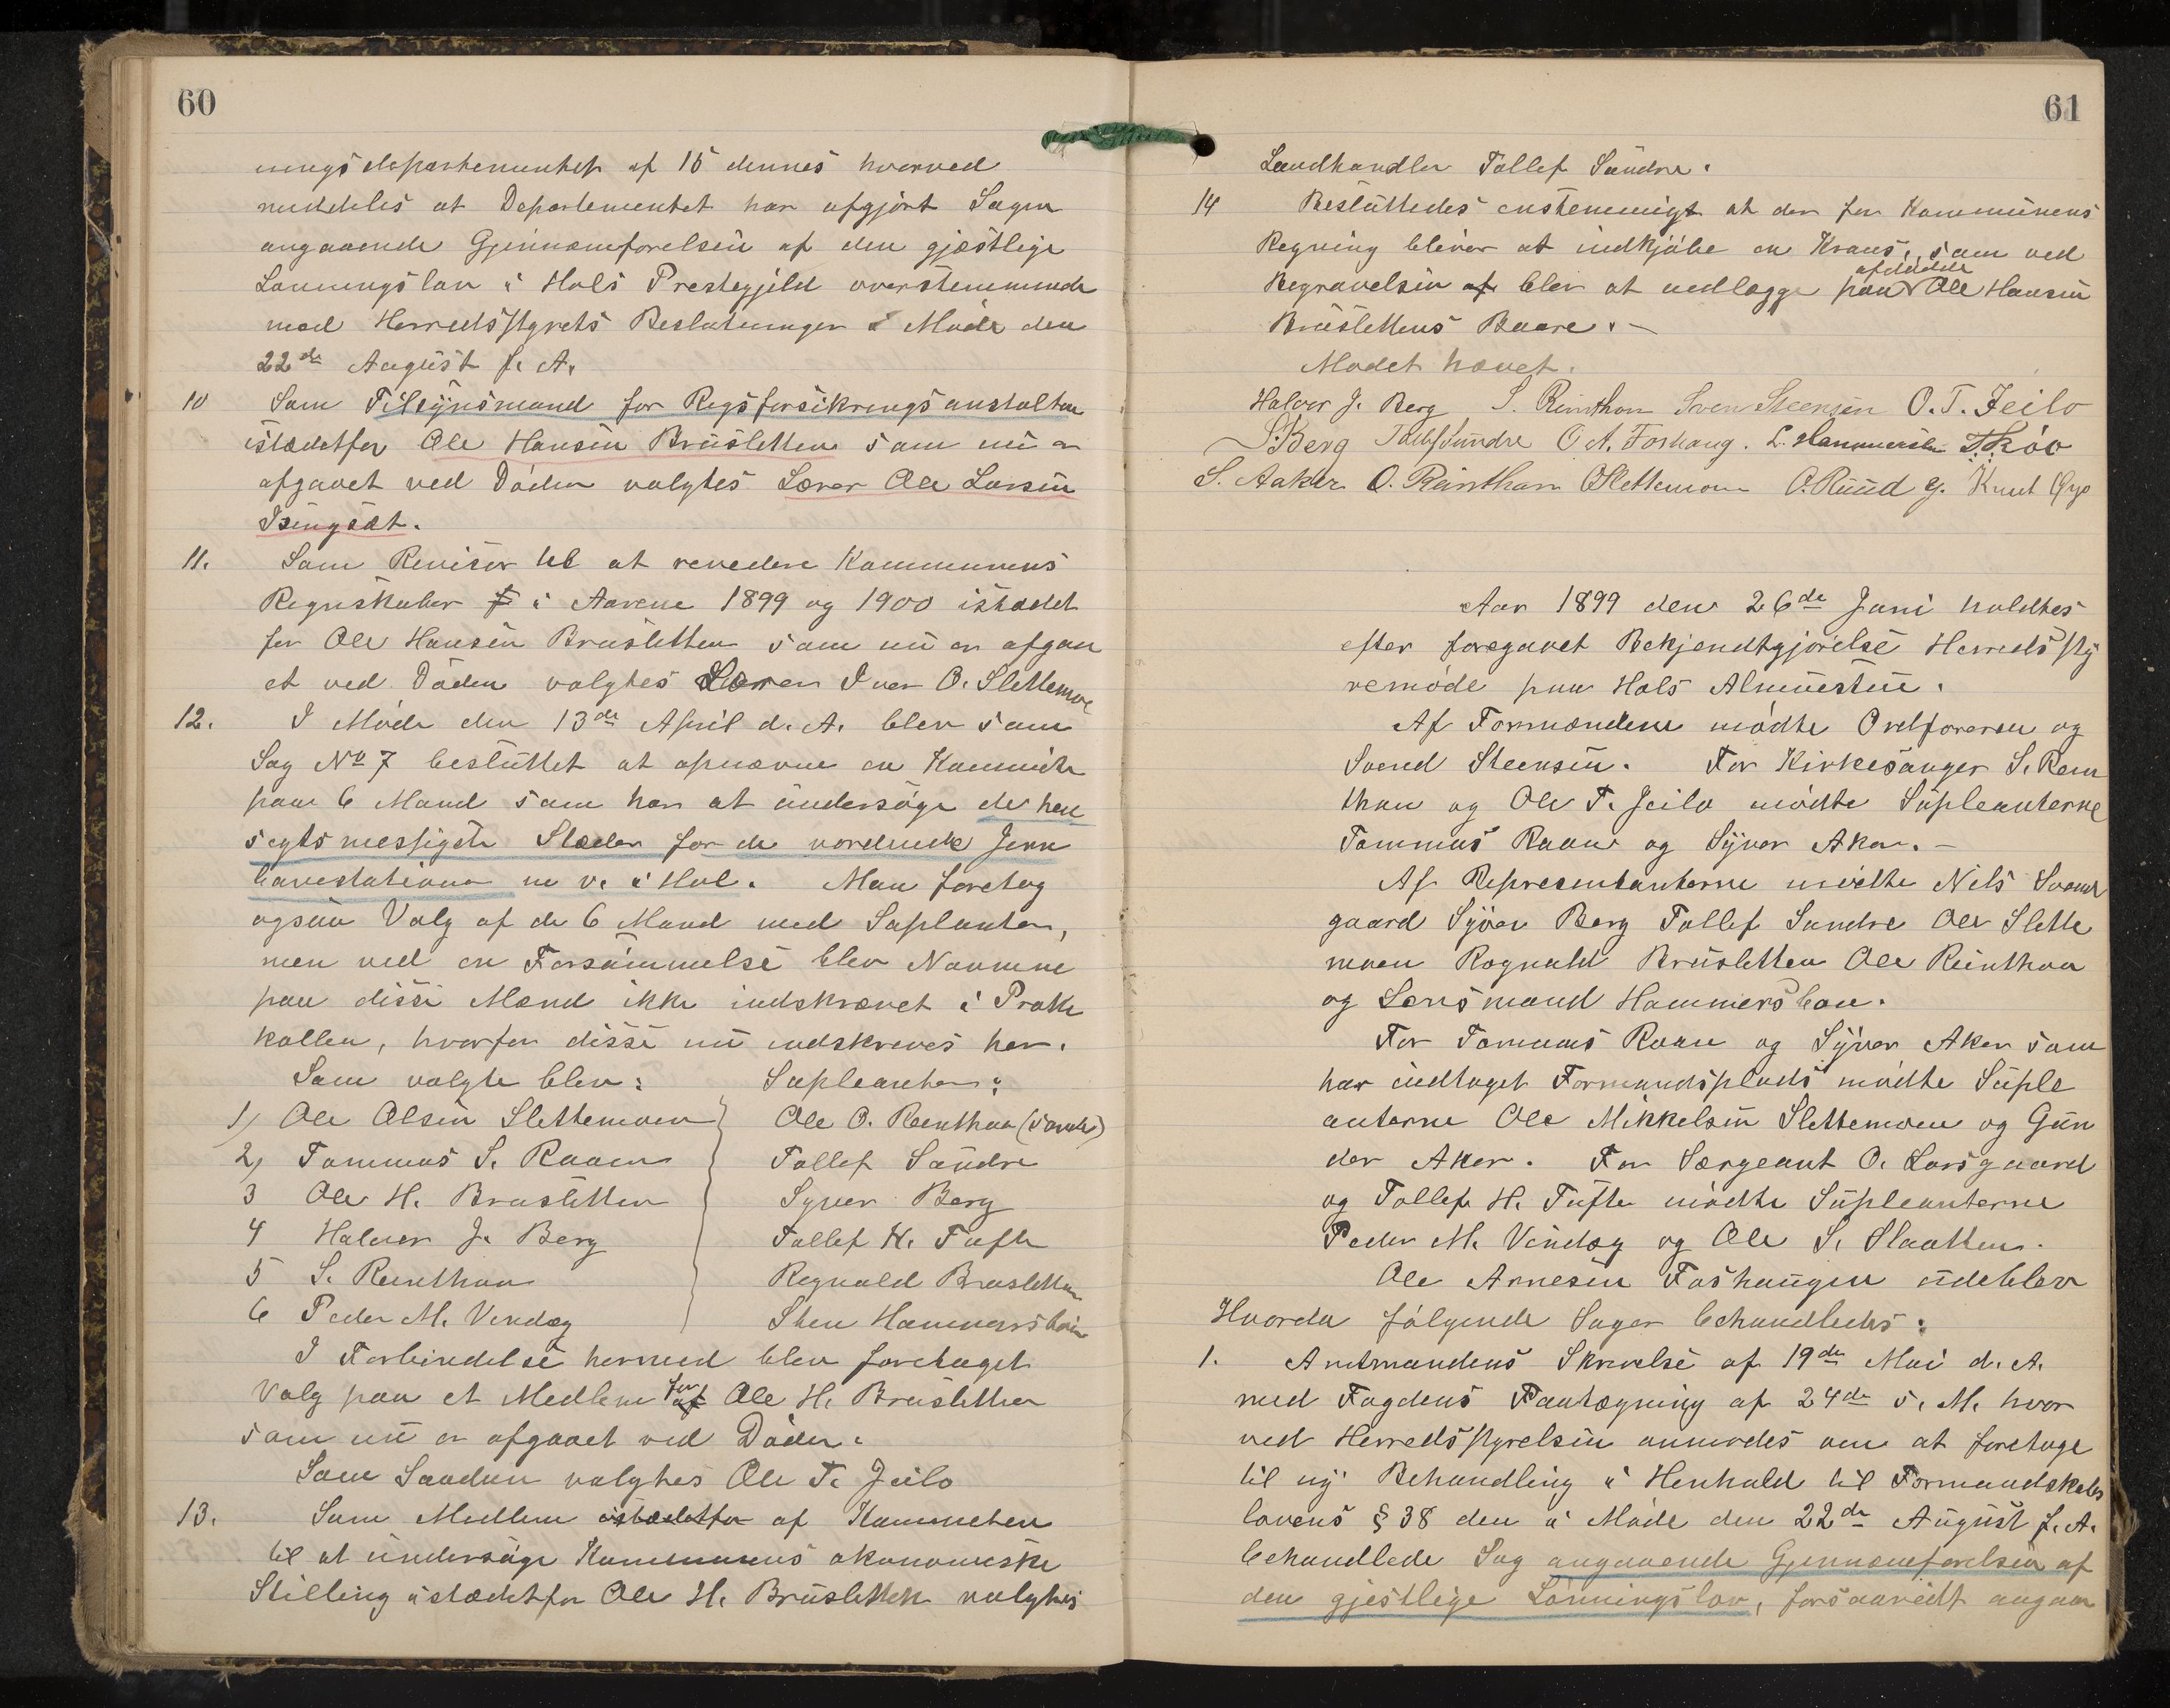 60
ningsdepartementet af 15 dennes hvorved
meddeles at Departementet har afgjört Sagen
angaaende Gjennemførelsen af den gjestlige
Lønningslov i Hols Prestegjeld overstemmende
med Herredsstyrets Beslutninger i Møde den
22de August f. A.
10 Som Tilsynsmand for Rigsforsikringsanstalten
istædetfor Ole Hansen Brusletten som nu er
afgaaet ved Döden valgtes Lærer Ole Larsen
Isungset.
11. Som Revisor til at revedere Kommunens
Regnskaber i Aarene 1899 og 1900 istædet
for Ole Hansen Brusletten som nu er afgaa
et ved Döden valgtes Lærer Iver O. Slettemoe
12. I Möde den 13de April d. A. blev som
Sag No 7 besluttet at opnævne en Kommite
paa 6 Mand som har at undersöge de hen
sigtsmessigste Stæder for de vordende Jern
banestationer m. v. i Hol. Man foretog
ogsaa Valg af de 6 Mand med Suplanter,
men ved en Forsømmelse blev Navnene
paa disse Mænd ikke indskrevet i Proto
kollen, hvorfor disse nu indskreves her.
Som valgte blev: Supleanter:
1) Ole Olsen Slettemoen Ole O. Reinthon (søndre)
2) Tommas S. Raaen Tollef Sundre
3 Ole H. Brusletten Syver Berg
4 Halvor J. Berg Tollef H. Tufte
5 S. Reinthon Regnald Brusletten
6 Peder M. Vindeg Sten Hammersbøen
I Forbindelse hermed blev foretaget
Valg paa et Medlem for af Ole H. Brusletten
som nu er afgaaet ved Döden.
Som Saadan valgtes Ole T. Jeilo
13. Som Medlem istædetfor af Kommiteen
til at undersöge Kommunens økonomiske
Stilling istædetfor Ole H. Brusletten valgtes
61
Landhandler Tollef Sundre.
14 Besluttedes enstemmigt at der for Kommunens
Regning bliver at indkjöbe en Krans, som ved
Begravelsen af blev at nedlægge paa afdöde Ole Hansen
Bruslettens Baare. –
Mødet hævet.
Halvor J. Berg S. Reinthon Sven Steensen O. T. Jeilo
S. Berg Tollef Sundre O A. Foshaug. L. Hammersbøen T. Sköv
S. Aaker O. Reinthon O Slettemoen O. Ruud g. Knut Øyo
Aar 1899 den 26de Juni holdtes
efter foregaaet Bekjendtgjörelse Herredssty
remöde paa Hols Almuestue.
Af Formændene mödte Ordføreren og
Svend Steensen. For Kirkesanger S. Rein
thon og Ole T. Jeilo mödte Supleanterne
Tommas Raaen og Syver Aker. –
Af Represemtanterne mödte Nils Svend
gaard Syver Berg Tollef Sundre Ole Slette
moen Rognald Brusletten Ole Reinthon
og Lensmand Hammersbøen.
For Tommas Raaen og Syver Aker som
har indtaget Formandsplads mödte Suple
anterne Ole Mikkelsen Slettemoen og Gun
der Aker. For Sergeant O. Larsgaard
og Tollef H. Tufte mödte Supleanterne
Peder M. Vindeg og Ole S. Slaatten.
Ole Arnesen Foshaugen udeblev
Hvorda fölgende Sager behandledes:
1. Amtmandens Skrivelse af 19de Mai d. A.
med Fogdens Paategning af 24de s. M. hvor
ved Herredsstyrelsen anmodes om at foretage
til ny Behandling i Henhold til Formandskabs
lovens § 38 den i Möde den 22de August f. A.
behandlede Sag angaaende Gjennemførelsen af
den gjestlige Lönningslov, forsaavidt angaa